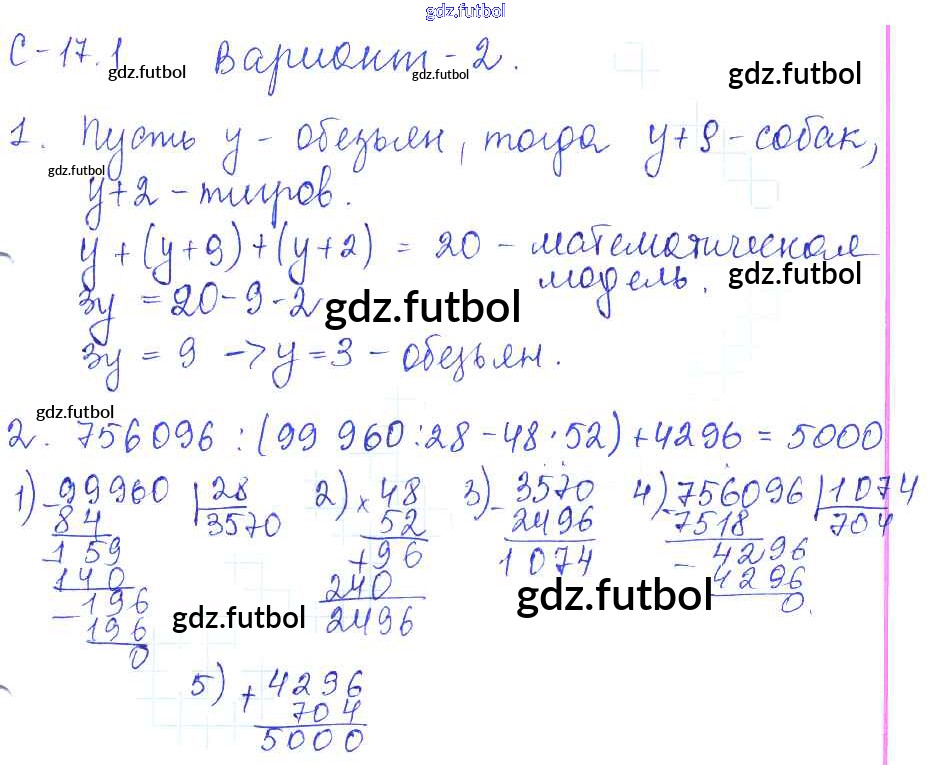 gdz.futbol
С-17.1 Вариант-2.
gdz.futbol gdz.futbol gdz.futbol
1. Пусть y - обезьян, тогда y+9 - собак,
gdz.futbol
y+2 - тигров.
y + (y+9) + (y+2) = 20 - математическая
модель.
gdz.futbol
3y = 20-9-2
gdz.futbol
3y = 9 -> y = 3 - обезьян.
gdz.futbol
2. 756096 : (99 960 : 28 - 48 · 52) + 4296 = 5000
1) 99960 | 28 2) × 48 3) 3570 4) 756096 | 1074
- 84 3570 52 - 2496 - 7518 704
159 + 96 1074 4296
140 240 - 4296
- 196 2496 0.
196
0
gdz.futbol gdz.futbol
5) + 4296
704
5000